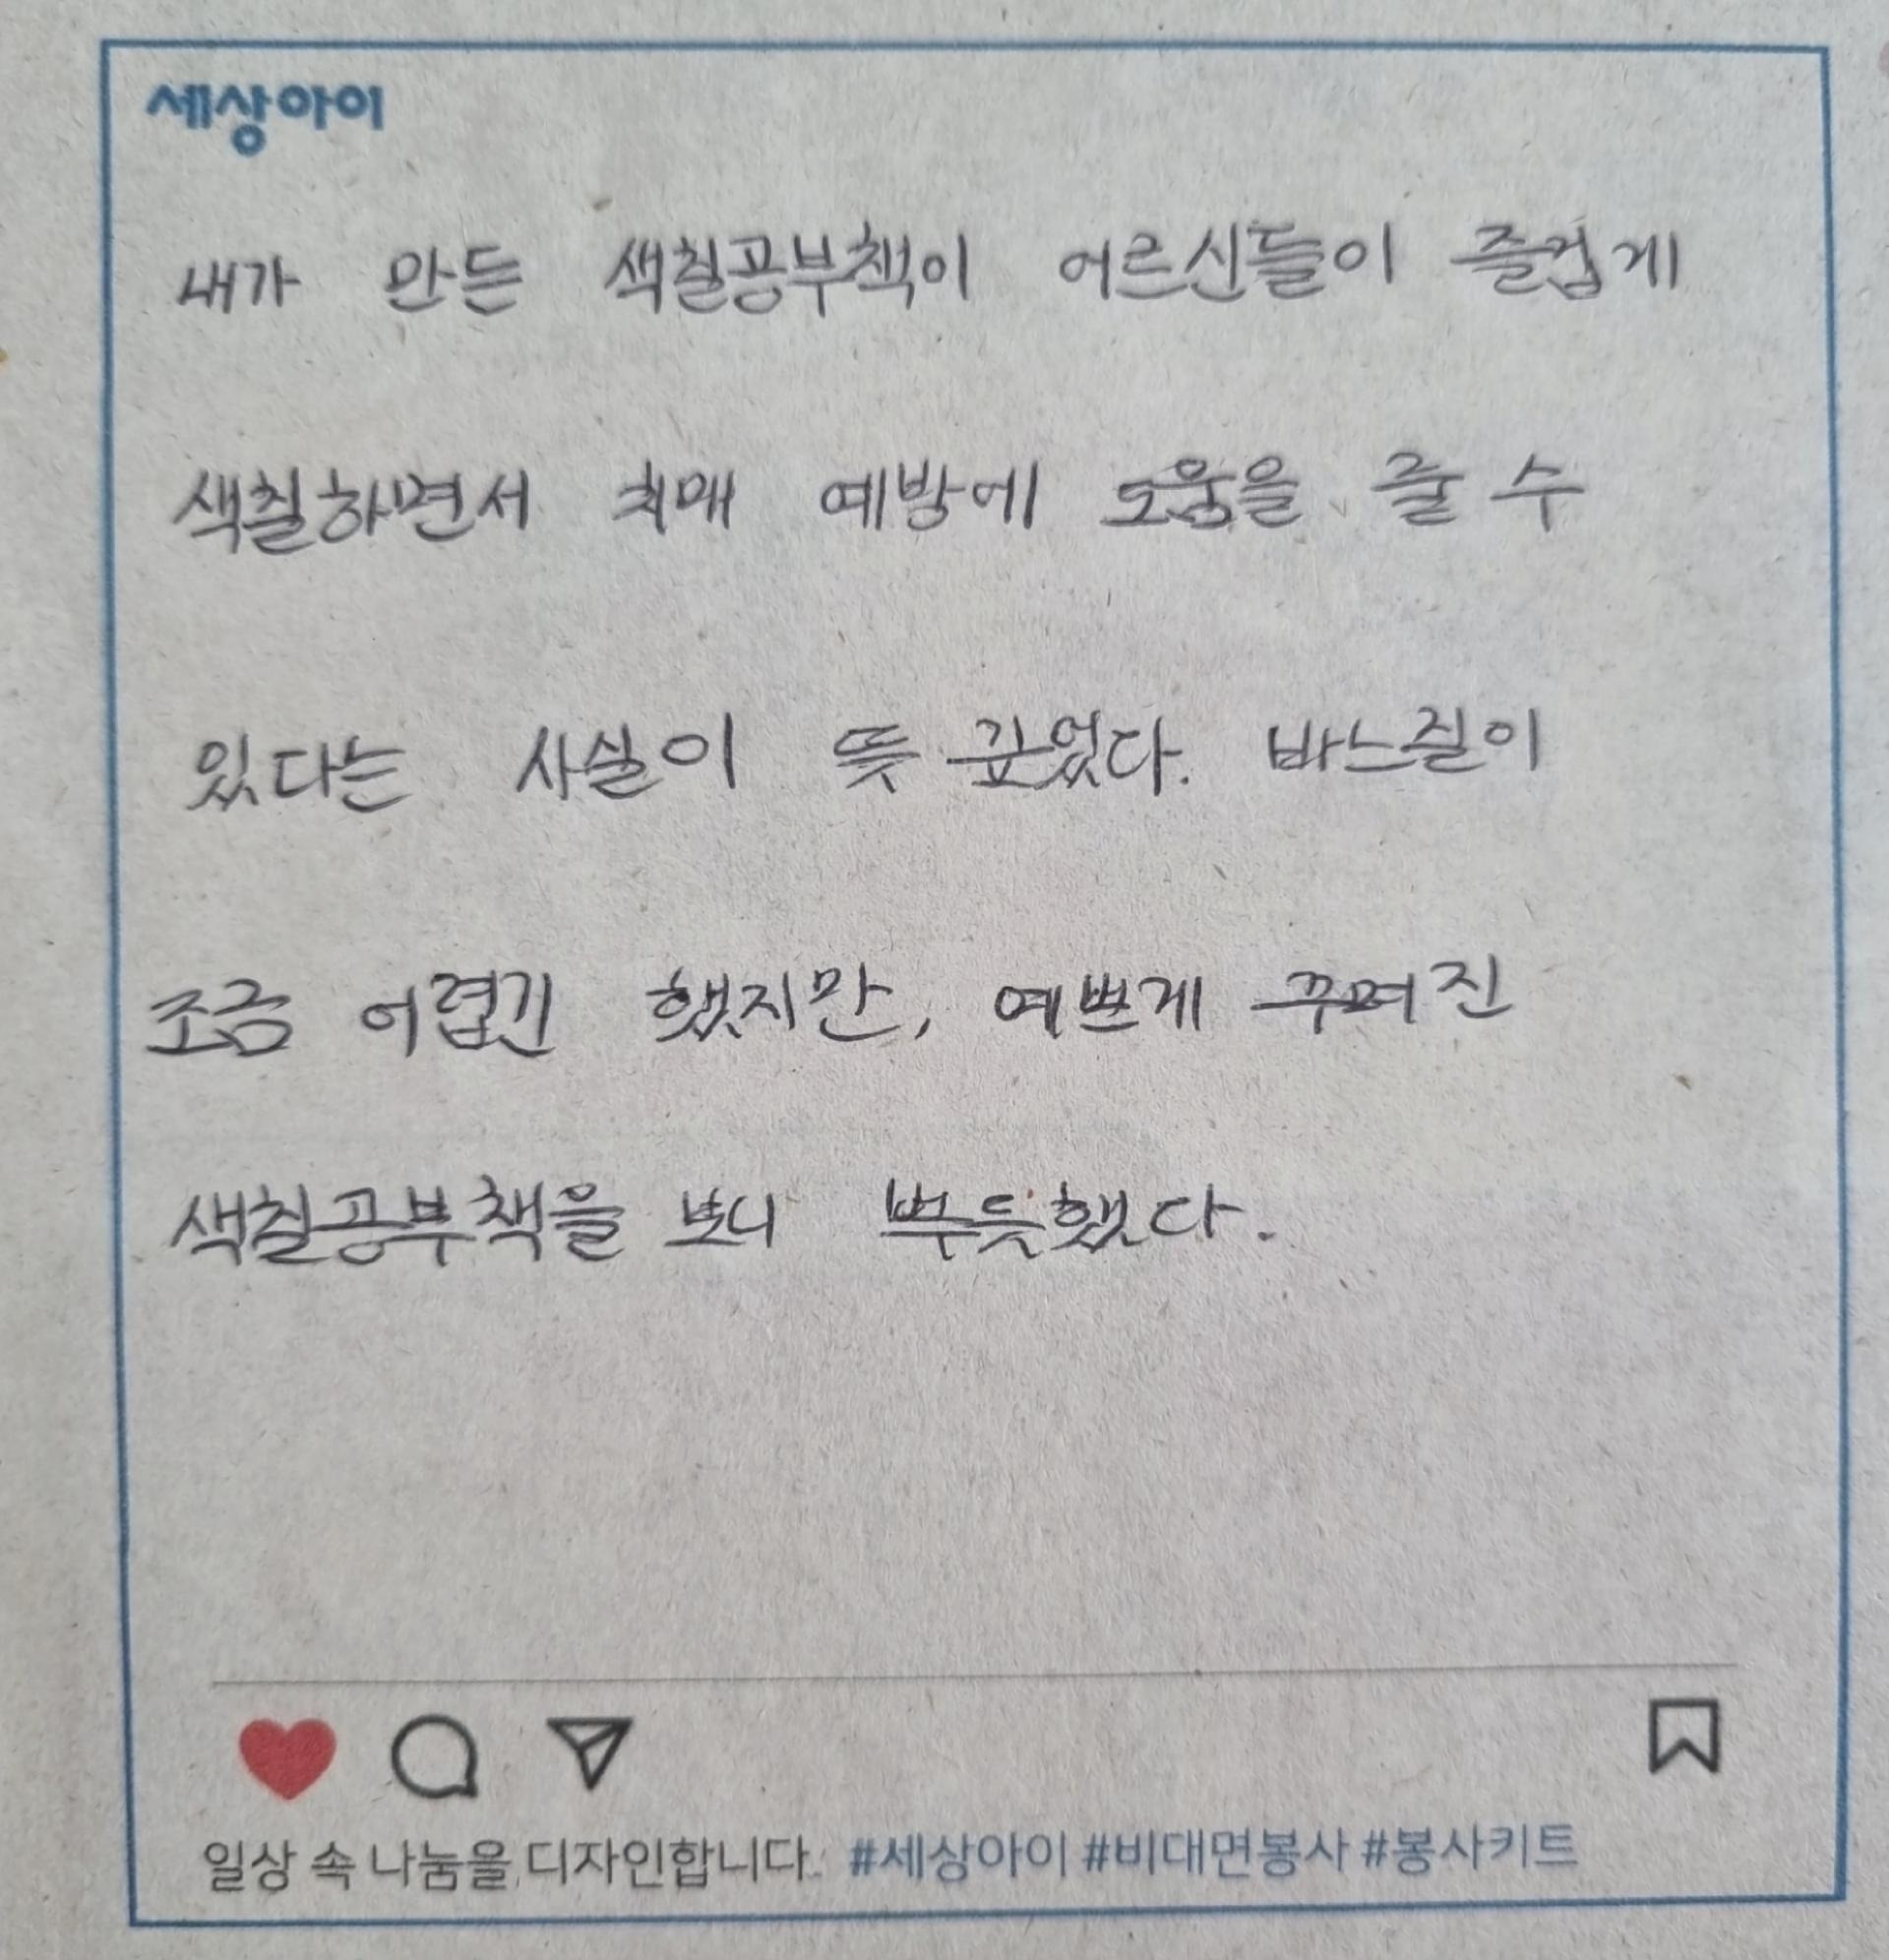 세상아이
내가 만든 색칠공부책이 어르신들이 즐겁게
색칠하면서 치매 예방에 도움을 줄 수
있다는 사실이 뜻 깊었다. 바느질이
조금 어렵긴 했지만, 예쁘게 꾸며진
색칠공부책을 보니 뿌듯했다.
일상 속 나눔을 디자인합니다. #세상아이 #비대면봉사 #봉사키트